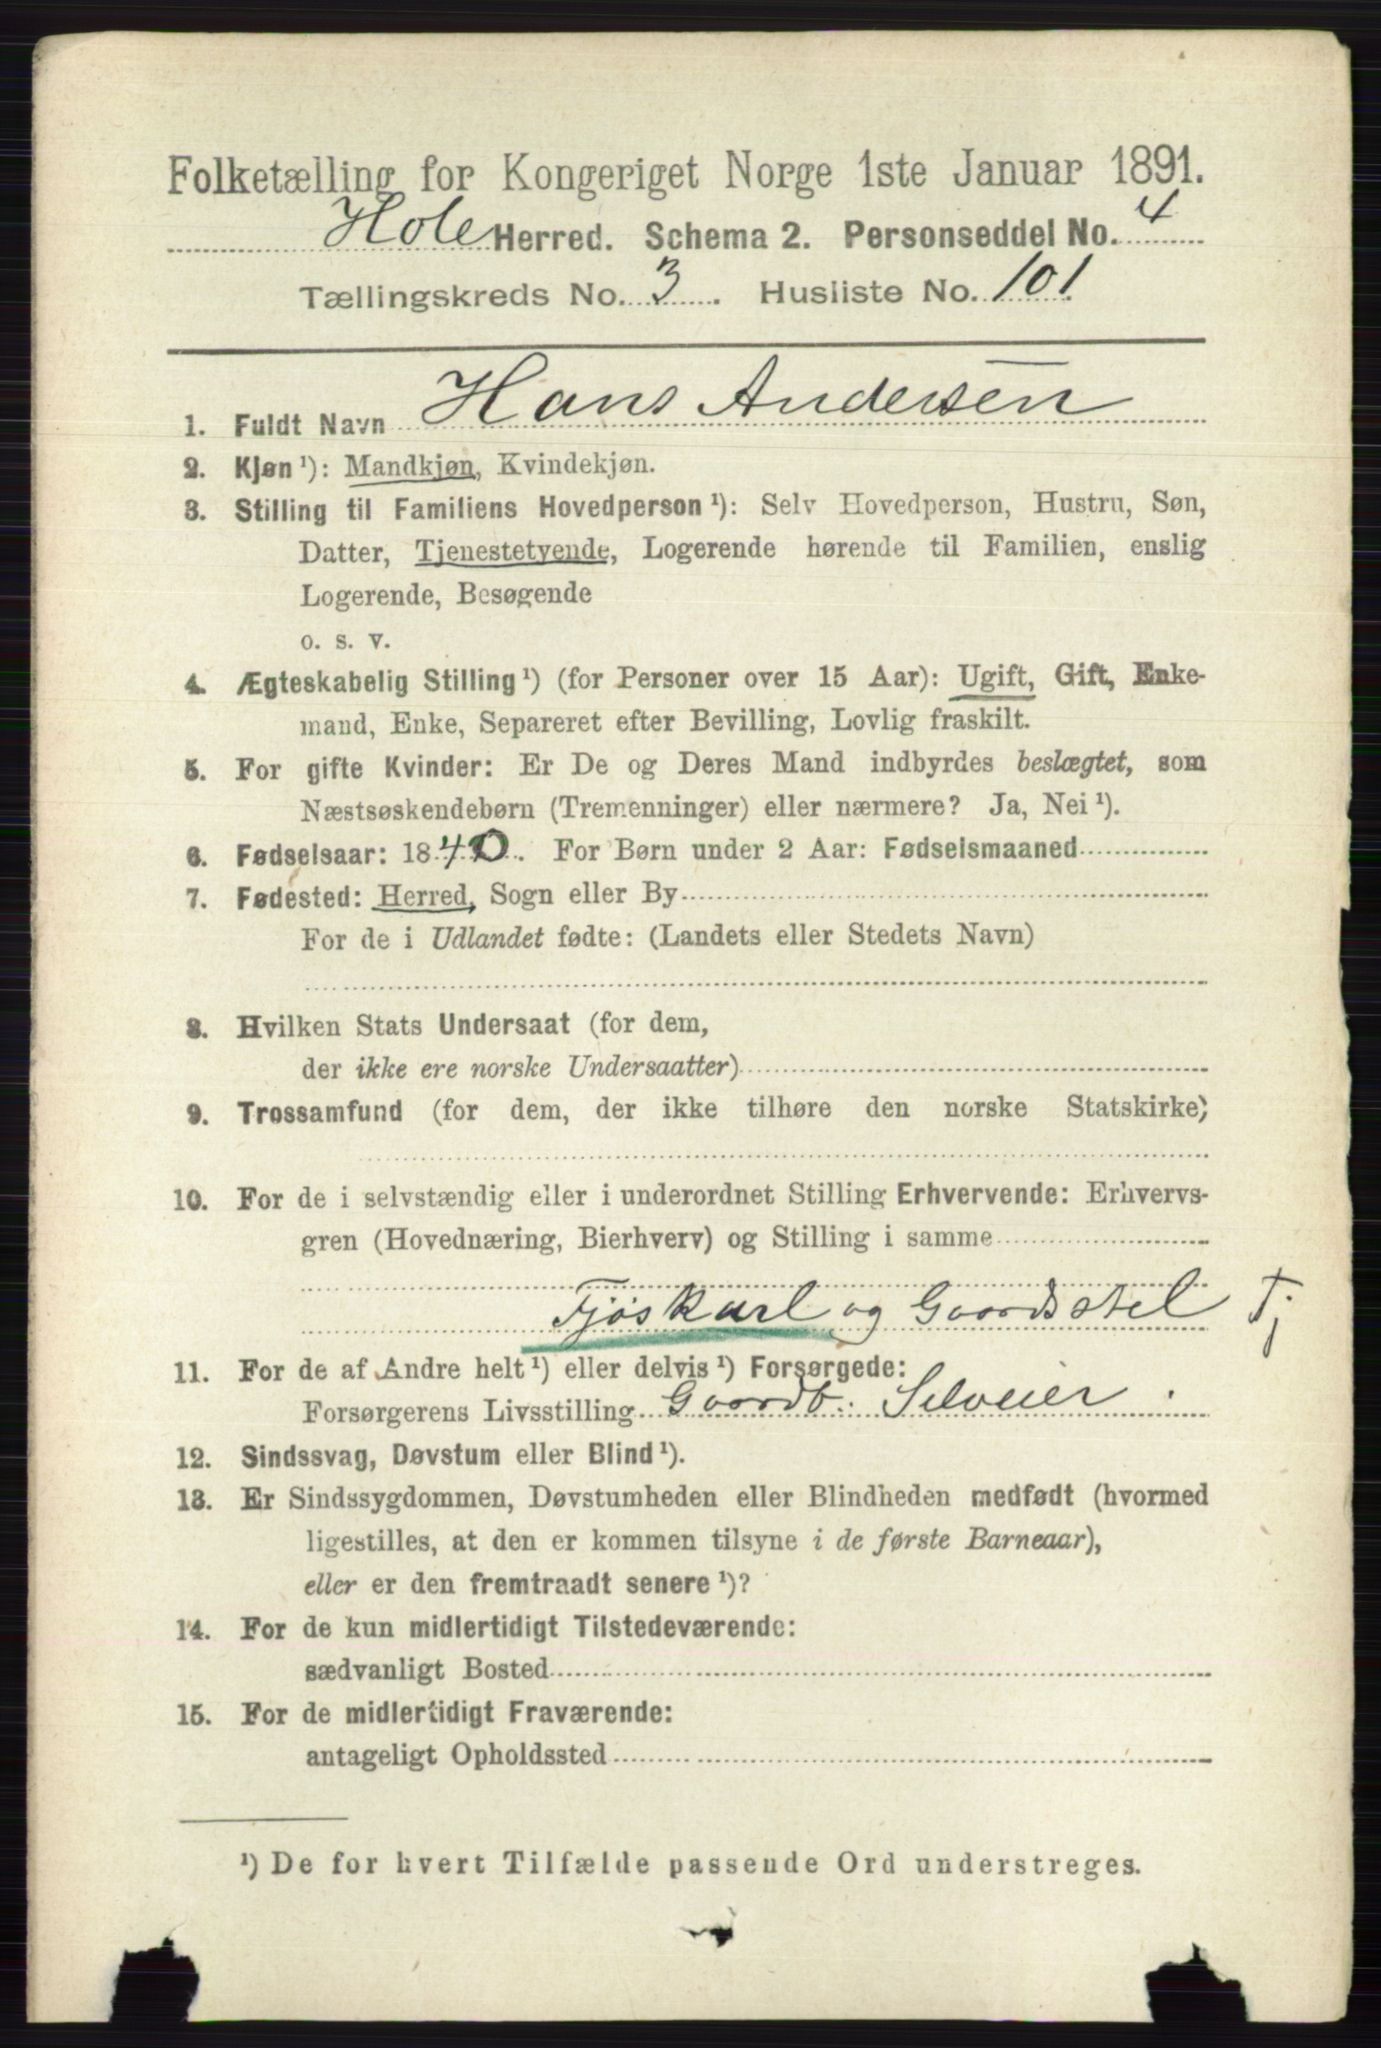 Folketælling for Kongeriget Norge 1ste Januar 1891.
Hole Herred. Schema 2. Personseddel No. 4
Tællingskreds No. 3. Husliste No. 101.
1. Fuldt Navn Hans Andersen
2. Kjøn ¹): Mandkjøn, Kvindekjøn.
3. Stilling til Familiens Hovedperson ¹): Selv Hovedperson, Hustru, Søn,
Datter, Tjenestetyende, Logerende hørende til Familien, enslig
Logerende, Besøgende
o. s. v.
4. Ægteskabelig Stilling ¹) (for Personer over 15 Aar): Ugift, Gift, Enke-
mand, Enke, Separeret efter Bevilling, Lovlig fraskilt.
5. For gifte Kvinder: Er De og Deres Mand indbyrdes beslægtet, som
Næstsøskendebørn (Tremenninger) eller nærmere? Ja, Nei ¹).
6. Fødselsaar: 1840. For Børn under 2 Aar: Fødselsmaaned
7. Fødested: Herred, Sogn eller By
For de i Udlandet fødte: (Landets eller Stedets Navn)
8. Hvilken Stats Undersaat (for dem,
der ikke ere norske Undersaatter)
9. Trossamfund (for dem, der ikke tilhøre den norske Statskirke)
10. For de i selvstændig eller i underordnet Stilling Erhvervende: Erhvervs-
gren (Hovednæring, Bierhverv) og Stilling i samme
Fjøskarl og Gaardsstel Tj
11. For de af Andre helt ¹) eller delvis ¹) Forsørgede:
Forsørgerens Livsstilling Gaardb. Selveier.
12. Sindssvag, Døvstum eller Blind ¹).
13. Er Sindssygdommen, Døvstumheden eller Blindheden medfødt (hvormed
ligestilles, at den er kommen tilsyne i de første Barneaar),
eller er den fremtraadt senere ¹)?
14. For de kun midlertidigt Tilstedeværende:
sædvanligt Bosted
15. For de midlertidigt Fraværende:
antageligt Opholdssted
¹) De for hvert Tilfælde passende Ord understreges.